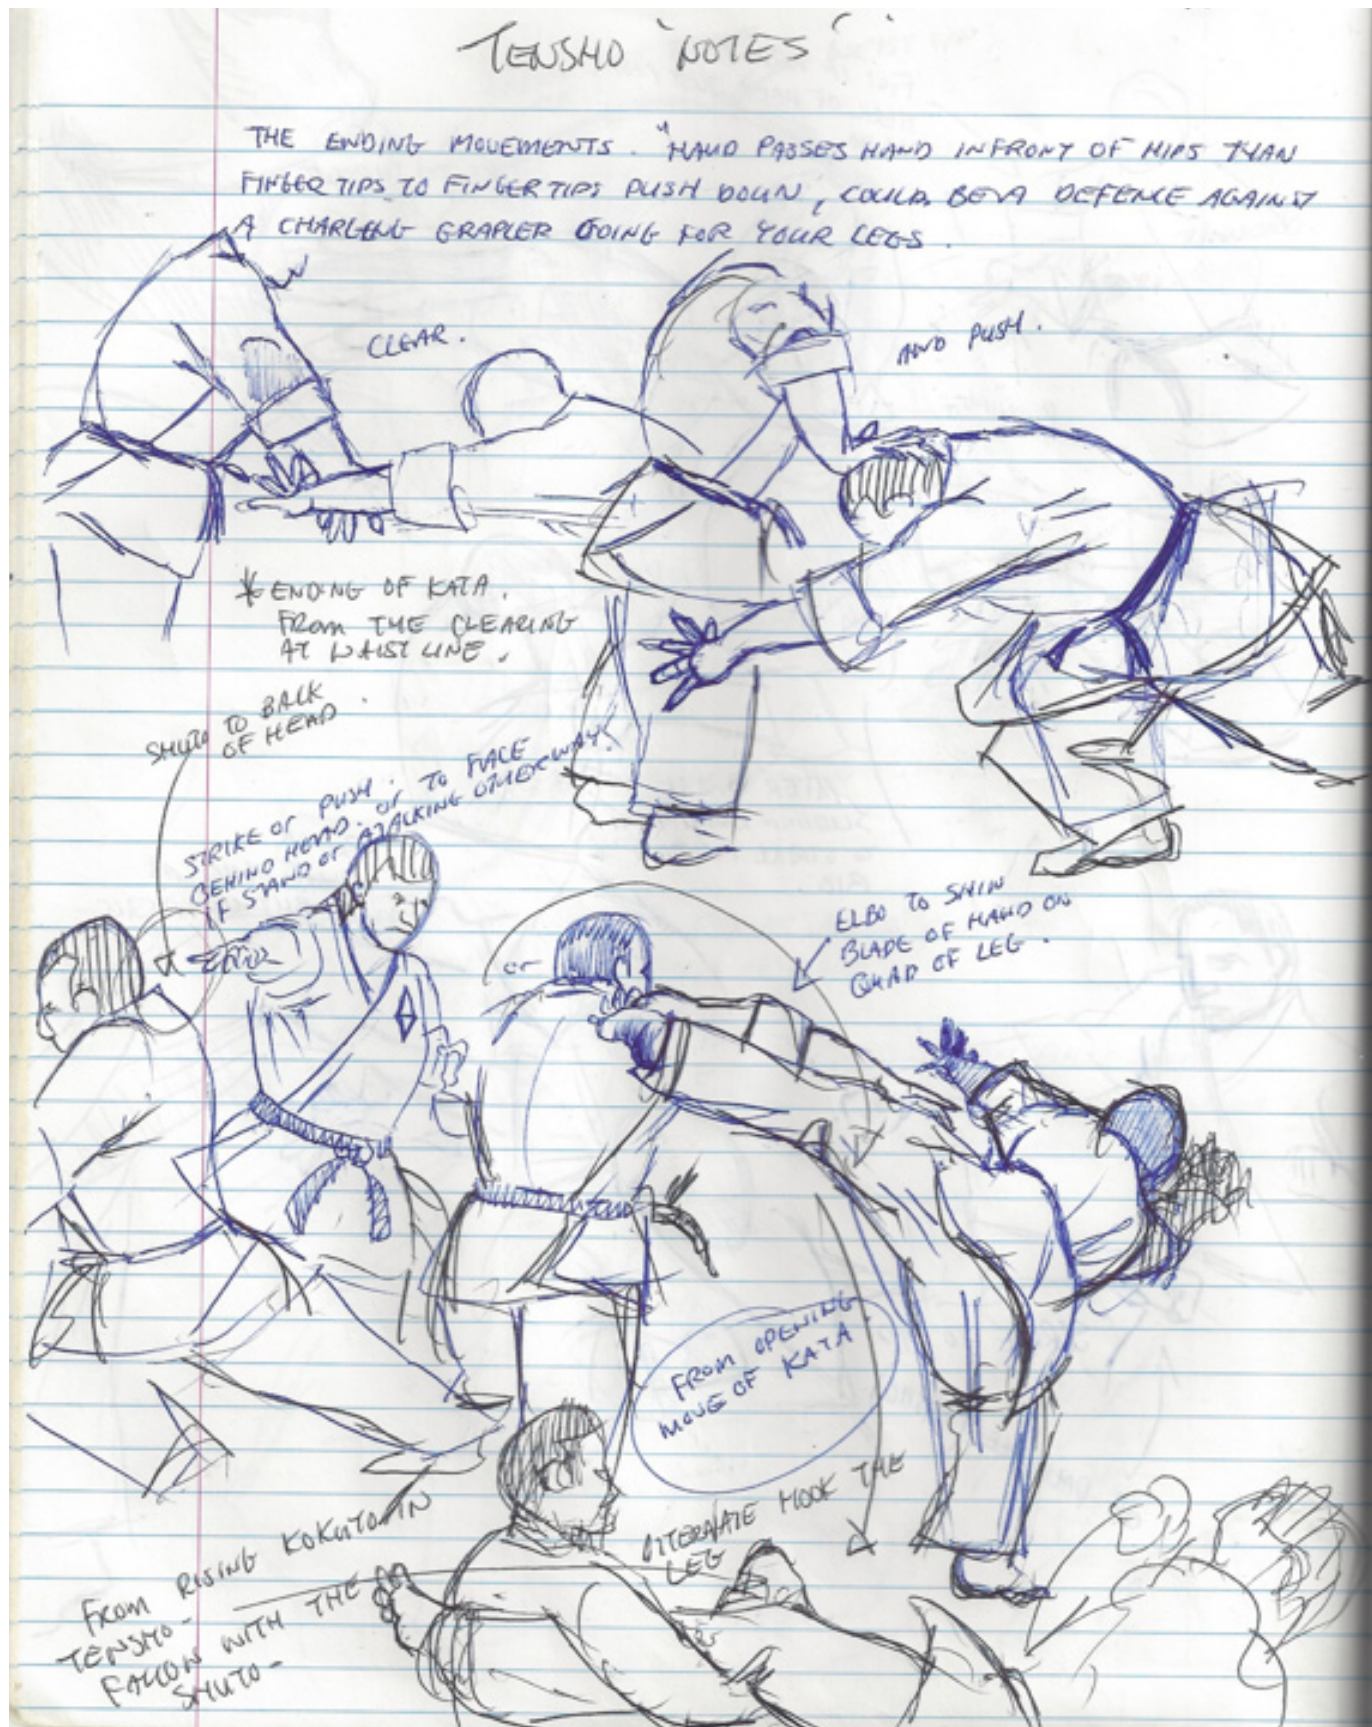 TENSHO 'NOTES'
THE ENDING MOVEMENTS. "HAND PASSES HAND INFRONT OF HIPS THAN
FINGER TIPS TO FINGER TIPS PUSH DOWN, COULD BE A DEFENCE AGAINST
A CHARGING GRAPLER GOING FOR YOUR LEGS.
CLEAR.
AND PUSH.
* ENDING OF KATA.
FROM THE CLEARING
AT WAIST LINE.
SHUTO TO BACK
OF HEAD.
STRIKE OR PUSH. OR TO FACE
BEHIND HEAD.
IF STAND OR WALKING OTHER WAY.
or
ELBO TO SHIN
BLADE OF HAND ON
QUAD OF LEG.
FROM OPENING
MOVE OF KATA
ALTERNATE HOOK THE
LEG
FROM RISING KOKUTO IN
TENSHO -
FALLOW WITH THE
SHUTO -